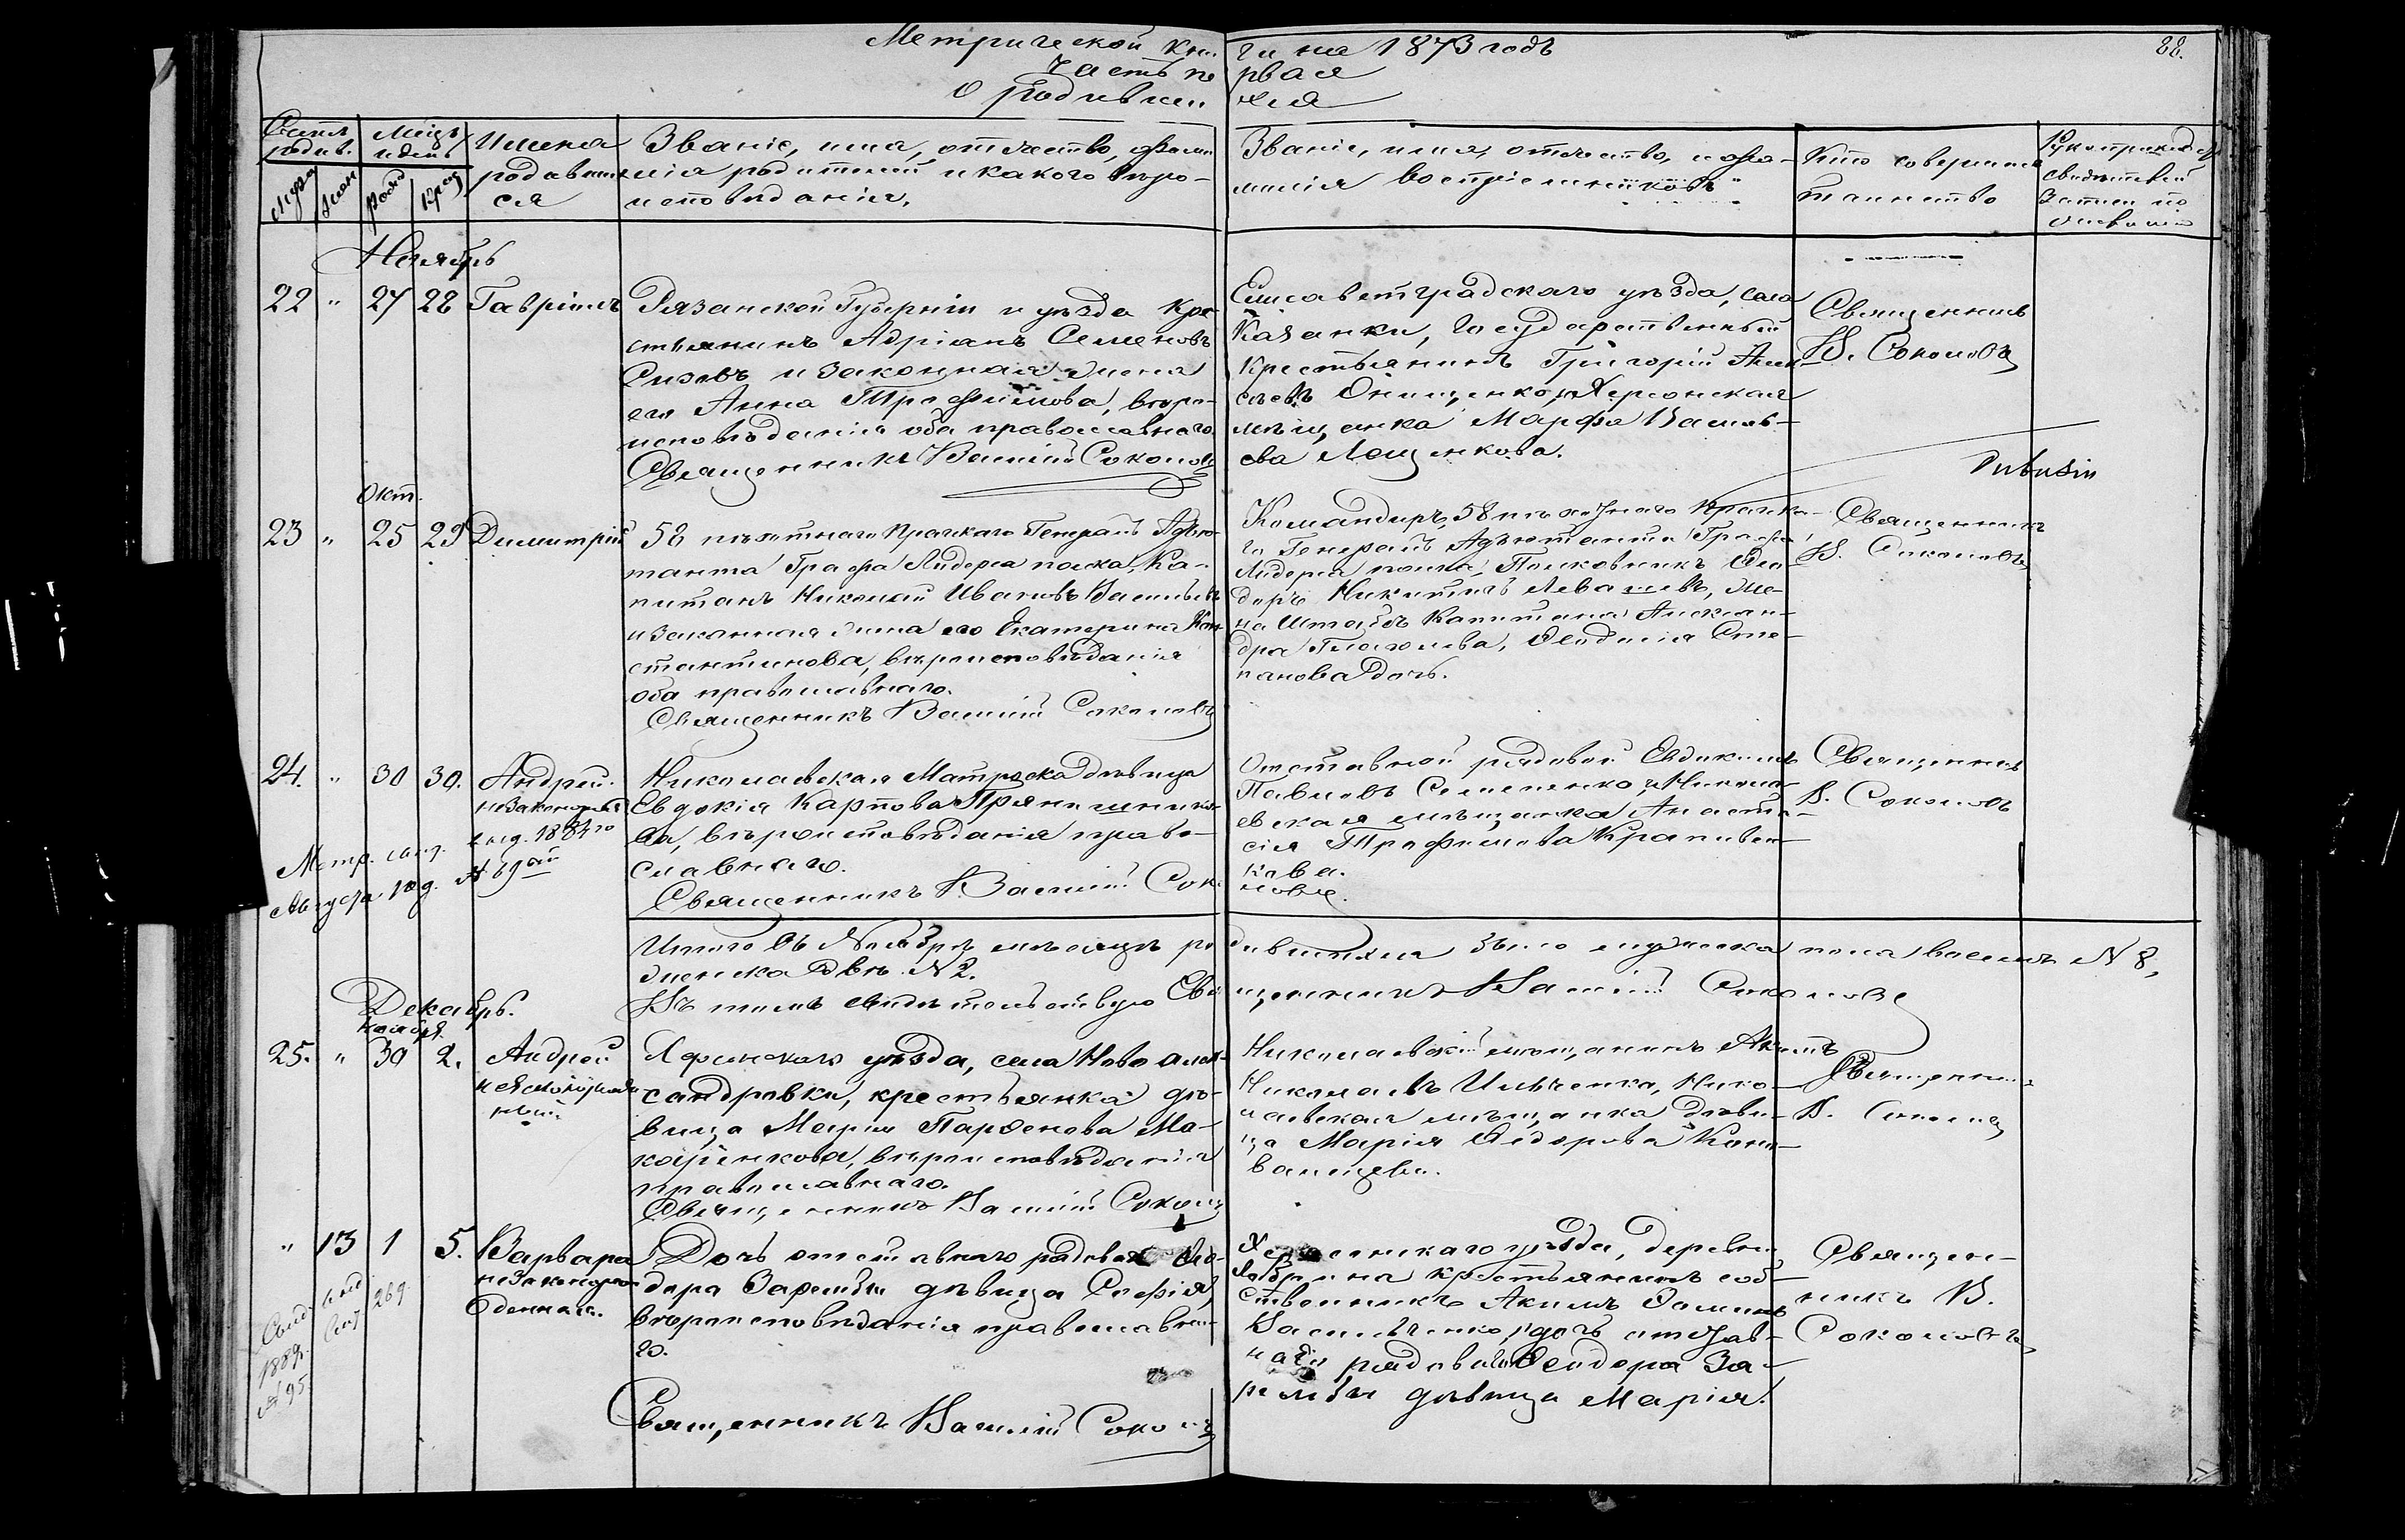 Метрической кни
ги на 1873 годъ
88.
часть пе
рвая
О родивши
хся
Счетъ родив.
Мѣсяцъ и день
Имена родившихся
Званіе, имя, отчество, фами
лія родителей и какого вѣро-
исповѣданія.
Званіе, имя, отчество, и фа-
милія воспріемниковъ
Кто совершалъ
таинство
Рукоприклад
свидѣтелей
записи по
желанію
Муж.
Жен.
Рожд.
Крещ.
Ноябрь
22 " 27 28 Гавріилъ
Рязанской Губерніи и уѣзда кре-
стьянинъ Адріанъ Семеновъ
и законная жена
его Анна Трофимова, вѣро-
исповѣданія оба православнаго.
Священникъ Василій Соколовъ
Елисаветградскаго уѣзда, села
Казанки, Государственный
крестьянинъ Григорій Алек-
сѣевъ Онищенко, и Херсонская
мѣщанка Марфа Василь-
ева Лещенкова.
Священникъ
В. Соколовъ
Окт.
23 " 25 29 Димитрій
58 пѣхотнаго Прагскаго Генералъ Адъю-
танта Графа Лидерса полка, Ка-
питанъ Николай Ивановъ Васильевъ
и законная жена его Екатерина Кон-
стантинова, вѣроисповѣданія
оба православнаго.
Священникъ Василій Соколовъ
Командиръ 58 пѣхотнаго Прагска-
го Генералъ Адъютанта Графа
Лидерса полка, Полковникъ Ѳео-
доръ Никитичъ Левашевъ, же-
на Штабсъ Капитана Алексан-
дра Глаголева, Ѳеодосія Сте-
панова дочь.
Священникъ
В. Соколовъ
24. " 30 30. Андрей
незаконорожд.
Метр. свид. выд. 1884го
Августа 18 д. № 69ый
Николаевская Матроска дѣвица
Евдокія Карпова Прянишнико-
ва, вѣроисповѣданія право-
славнаго.
Священникъ Василій Соко
ловъ.
Отставной рядовой Евдокимъ
Павловъ Семененко, и Никола-
евская мѣщанка Анаста-
сія Трофимова Крапивен-
кова.
Священникъ
В. Соколовъ
Итого въ Ноябрѣ мѣсяцѣ ро
дившихся было мужеска пола восемь № 8,
женска двѣ № 2.
Въ томъ свидѣтельствую Свя
щенникъ Василій Соколовъ
Декабрь.
Ноября
25. " 30 2. Андрей
незаконорожден-
ный
Херсонскаго уѣзда, села Ново алек-
сандровки, крестьянка дѣ-
вица Марія Парѳенова Ма-
каренкова, вѣроисповѣданія
православнаго.
Священникъ Василій Соколовъ
Николаевскій мѣщанинъ
Николаевъ Ильченко, Нико-
лаевская мѣщанка дѣви-
ца Марія Ѳедорова Коно-
валцева.
Священникъ
В. Соколовъ
" 13 1 5. Варвара
незаконорож-
денная.
1889
№ 95
269
Дочь отставнаго рядоваго Ѳео-
дора Зарембы дѣвица Софія,
вѣроисповѣданія православна-
го.
Священникъ Василій Соколовъ
Херсонскаго уѣзда, деревни
крестьянинъ соб-
ственникъ Акимъ Ѳоминъ
Василенко, и дочь отстав-
наго рядоваго Ѳеодора За-
рембы дѣвица Марія.
Священ-
никъ В.
Соколовъ